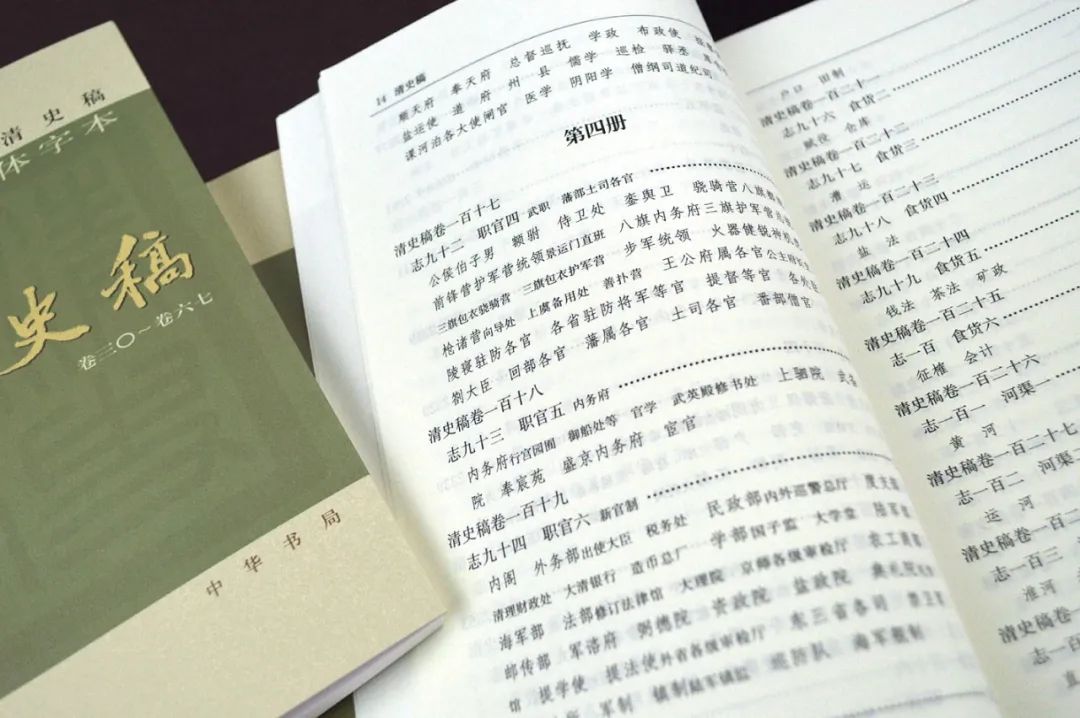 清史稿
体字本
史稿
卷三〇～卷六七
中华书局
14 清史稿
顺天府 奉天府 总督巡抚 学政 布政使
盐运使 道 府 州 县 儒学 巡检 驿丞
漕河泊各大使闸官 医学 阴阳学 僧纲司道纪司
第四册
清史稿卷一百十七
志九十二 职官四 武职 藩部土司各官
公侯伯子男 额驸 侍卫处 銮舆卫 骁骑营八旗
前锋营护军营统领景运门直班 八旗内务府三旗护军营
三旗包衣骁骑营 三旗包衣护军营 步军统领 火器健锐神机
枪诸营向导处 上虞备用处 善扑营 王公府属各官公主府
陵寝驻防各官 各省驻防将军等官 提督等官 各处
劄大臣 回部各官 藩属各官 土司各官 番部僧官
清史稿卷一百十八
志九十三 职官五 内务府
内务府行宫园囿 御船处等 官学 武英殿修书处 上驷院 武备
院 奉宸苑 盛京内务府 宦官
清史稿卷一百十九
志九十四 职官六 新官制
内阁 外务部出使大臣 税务处 民政部内外巡警总厅 度支部
清理财政处 大清银行 造币总厂 学部国子监 大学堂 陆军部
海军部 法部修订法律馆 大理院 京师各级审检厅 农工商部
邮传部 军谘府 弼德院 资政院 盐政院 典礼院
馆 提学使 提法使外省各级审检厅 东三省各司 禁卫军
军制 镇制 巡防队 海军舰制
户口 田制
清史稿卷一百二十一
志九十六 食货二
赋役 仓库
清史稿卷一百二十二
志九十七 食货三
漕运
清史稿卷一百二十三
志九十八 食货四
盐法
清史稿卷一百二十四
志九十九 食货五
钱法 茶法 矿政
清史稿卷一百二十五
志一百 食货六
征榷 会计
清史稿卷一百二十六
志一百一 河渠一
黄河
清史稿卷一百二十七
志一百二 河渠二
运河
清史稿卷一百二
志一百三
淮河
清史稿卷一百
志一百
直